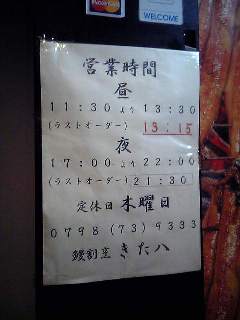 MasterCard
WELCOME
営業時間
昼
11:30より13:30
(ラストオーダー) 13:15
夜
17:00より22:00
(ラストオーダー) 21:30
定休日 木曜日
0798(73)9333
鰻割烹 きた八